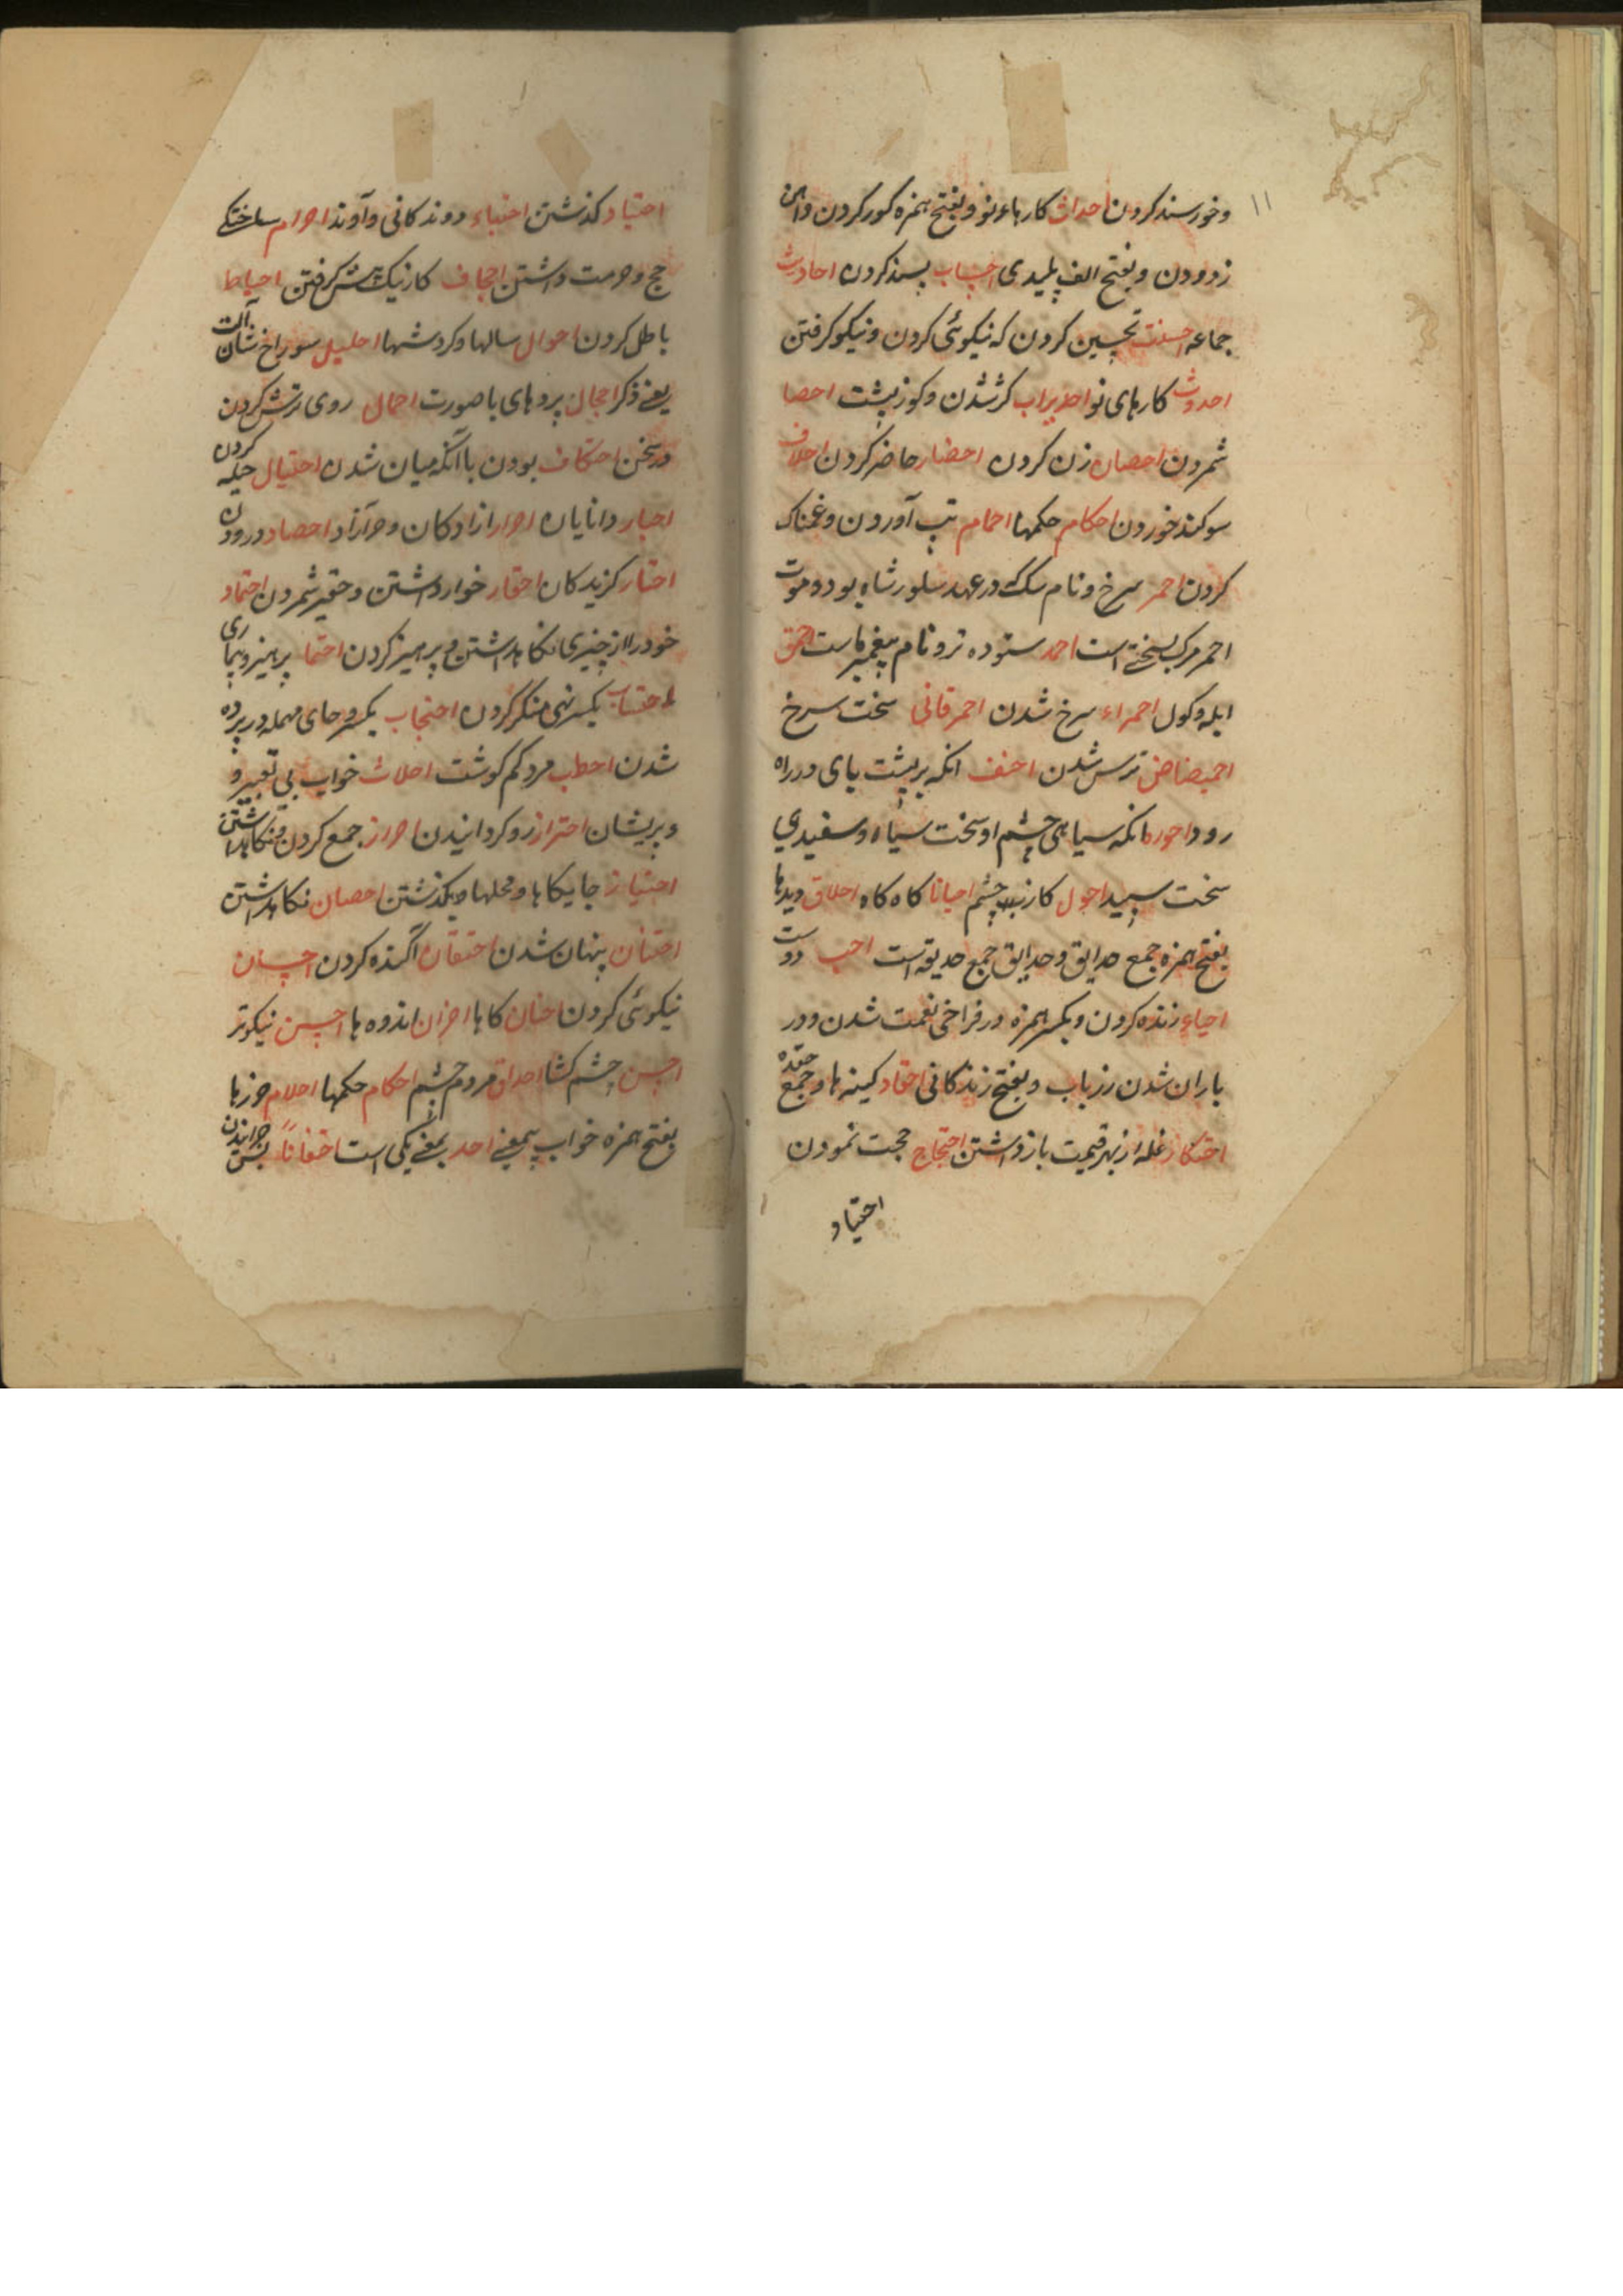 ۱۱
و خورسند کردن احداث کارهاء نو و بفتح همزه کور کردن و
زدودن و بفتح الف پلیدی احساب پسند کردن احادیث
جماعه احسنت تحسین کردن که نیکوئی کردن و نیکو کرفتن
احدوث کارهای نو احدیداب کژ شدن و کوز پشت احصا
شمردن احصان زن کردن احضار حاضر کردن احلاف
سوکند خوردن احکام حکمها احمام تب آوردن و غمناک
کردن احمر سرخ و نام سک در عهد شاه بود و موت
احمر مرک بسختی است احمد ستوده تر و نام پیغمبر ماست احمق
ابله و کول احمراء سرخ شدن احمر قانی سخت سرخ
ترس شدن احنف انکه بر پشت پای در راه
رود احور انکه سیاهی چشم او سخت سیاه و سفیدی
سخت سپید احول کاژ چشم احیانا کاه کاه احداق دیدها
بفتح همزه جمع حدایق و حدایق جمع حدیقه است احب دوست
احیاء زنده کردن و بکسر همزه در فراخی نعمت شدن و در
باران شدن و بفتح زندکانی احقاد کینه ها و جمع حقده
احتکار غله از بهر قیمت باز داشتن احتجاج حجت نمودن
احتیاد
احتیاد کذشتن احتباء روندکانی و آوند احرام ساختکی
حج و حرمت داشتن احجاف کار نیک پیش کرفتن احباط
باطل کردن احوال سالها و کردشها احلیل سوراخ نشان آلت
یعنی ذکر احجال پردهای با صورت احمال روی ترش کردن
در سخن احتکاف بودن با آنکه میان شدن احتیال حیله کردن
احبار دانایان احرار ازادکان و حر آزاد احصاد درودن
احتار کزیدکان احقار خوار داشتن و حقیر شمردن احتماد
خود را از چیزی نکاهداشتن و پرهیز کردن احتما پرهیز و
احتساب بکسر نهی منکر کردن احتجاب بکسر و حای مهمله در پرده
شدن احطب مرد کم کوشت احلاث خواب بی تعبیر و
و پریشان احتراز رو کردانیدن احراز جمع کردن و نکاهداشتن
احتیاز جایکاها و محلها و بکذشتن احصان نکاهداشتن
احتنان پنهان شدن احتقان آکنده کردن احسان
نیکوئی کردن احنان کاها احزان اندوه ها احسن نیکوتر
احسن چشم کشا احداق مردم چشم احکام حکمها احلام
بفتح همزه خواب بیمعنی احد بمعنی یکی است